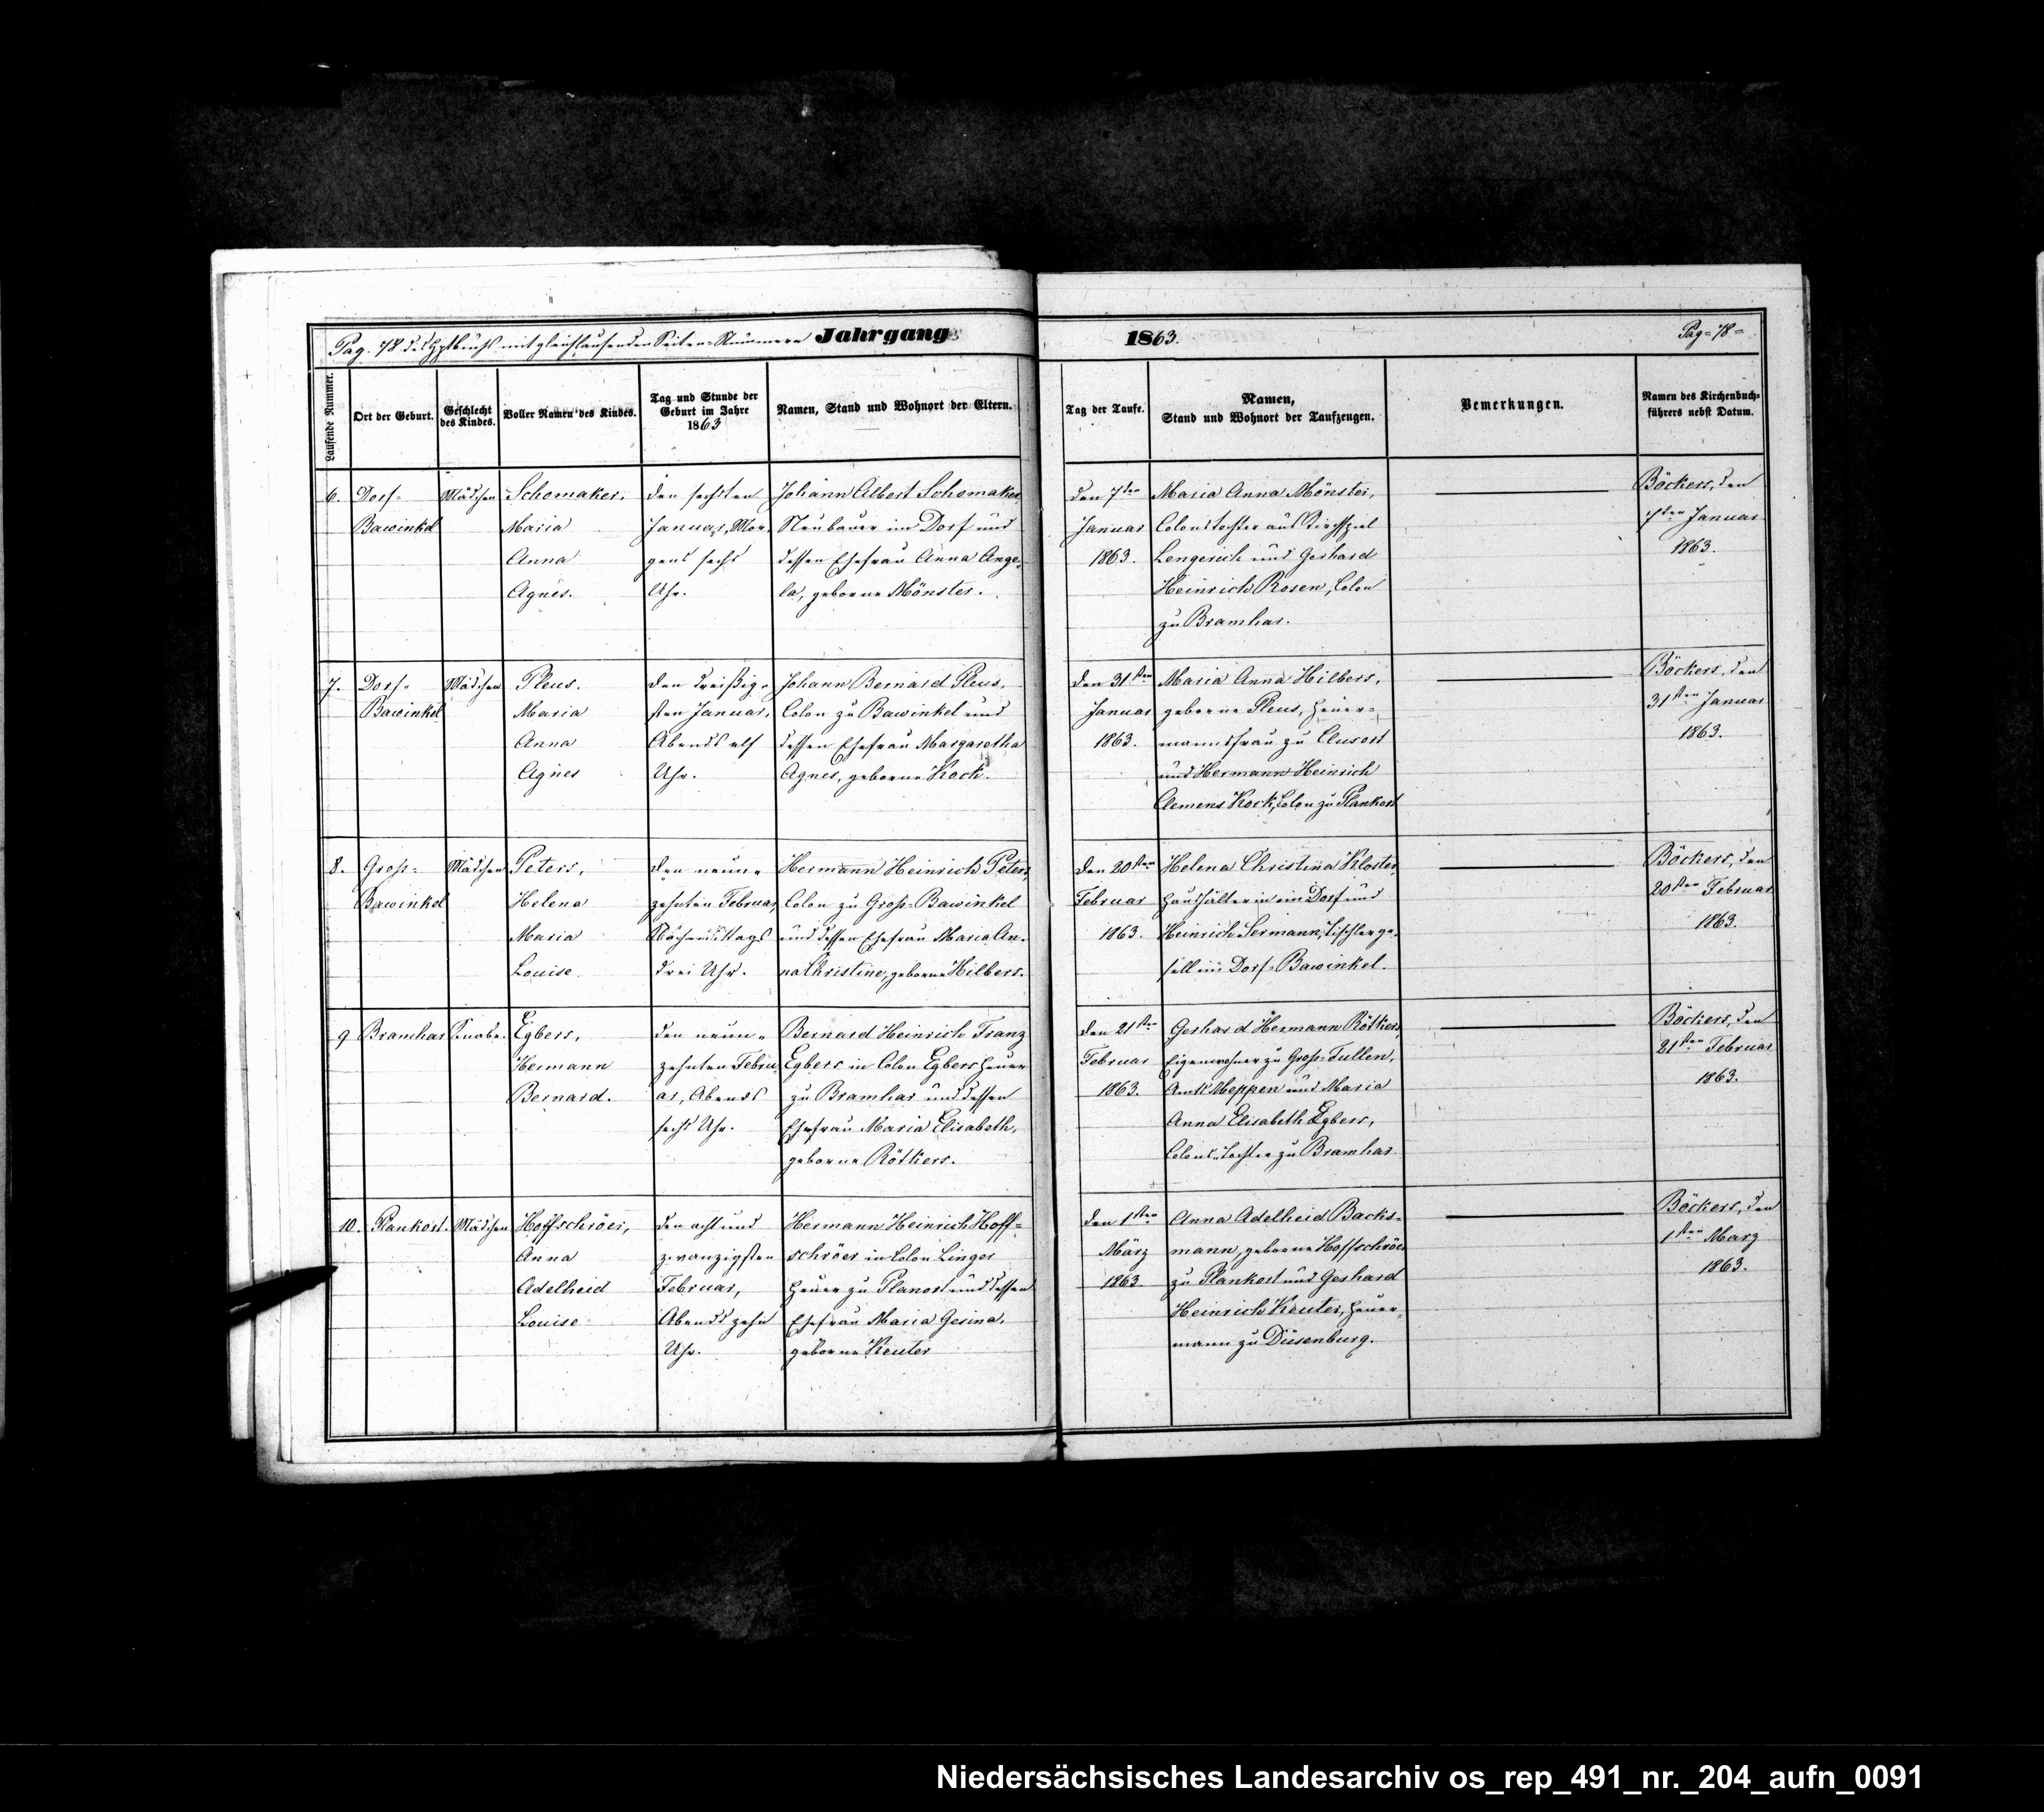 Pag. 78 des Hptbuchs mit gleichlaufenden Seiten-Nummern Jahrgang
1863.
Pag-78-
Laufende Nummer.
Ort der Geburt.
Geschlecht
des Kindes.
Voller Namen des Kindes.
Tag und Stunde der
Geburt im Jahre
1863
Namen, Stand und Wohnort der Eltern.
Tag der Taufe.
Namen,
Stand und Wohnort der Taufzeugen.
Bemerkungen.
Namen des Kirchenbuch-
führers nebst Datum.
6.
Dorf-
Bawinkel
Mädchen
Schomaker,
Maria
Anna
Agnes.
den sechsten
Januar, Mor-
gens sechs
Uhr.
Johann Albert Schomaker,
Neubauer im Dorf und
dessen Ehefrau Anna Ange-
la, geborne Mönster.
den 7ten
Januar
1863.
Maria Anna Mönster,
Colonstochter aus Kirchspiel
Lengerich und Gerhard
Heinrich Rosen, Colon
zu Bramhar.
Böckers, den
7ten Januar
1863.
7.
Dorf-
Bawinkel
Mädchen
Pleus.
Maria
Anna
Agnes
den dreißig-
sten Januar,
Abends elf
Uhr.
Johann Bernard Pleus,
Colon zu Bawinkel und
dessen Ehefrau Margaretha
Agnes, geborne Kock.
den 31sten
Januar
1863.
Maria Anna Hilbers,
geborne Pleus, Heuer-
mannsfrau zu Clusort
und Hermann Heinrich
Clemens Kock, Colon zu Plankort
Böckers, den
31sten Januar
1863.
8.
Groß-
Bawinkel
Mädchen
Peters,
Helena
Maria
Louise.
den neun-
zehnten Februar,
Nachmittags
drei Uhr.
Hermann Heinrich Peters,
Colon zu Groß-Bawinkel
und dessen Ehefrau Maria An-
na Christine, geborne Hilbers.
den 20sten
Februar
1863.
Helena Christina Kloster,
Haushälterin im Dorf und
Heinrich Sermann, Tischlerge-
sell im Dorf-Bawinkel.
Böckers, den
20sten Februar
1863.
9
Bramhar
Knabe.
Egbers,
Hermann
Bernard.
den neun-
zehnten Febru-
ar, Abends
sechs Uhr.
Bernard Heinrich Franz
Egbers in Colon Egbers Heuer
zu Bramhar und dessen
Ehefrau Maria Elisabeth,
geborne Rötkers.
den 21sten
Februar
1863.
Gerhard Hermann Rötkers,
Eigenwohner zu Groß-Fullen,
Amts Meppen und Maria
Anna Elisabeth Egbers,
Colons-Tochter zu Bramhar
Böckers, den
21sten Februar
1863.
10.
Plankort.
Mädchen
Hoffschröer,
Anna
Adelheid
Louise
den acht und
zwanzigsten
Februar,
Abends zehn
Uhr.
Hermann Heinrich Hoff-
schröer in Colon Linger
Heuer zu Planort und dessen
Ehefrau Maria Gesina,
geborne Keuter
den 1sten
März
1863.
Anna Adelheid Backs-
mann, geborne Hoffschröer
zu Plankort und Gerhard
Heinrich Keuter, Heuer-
mann zu Düsenburg.
Böckers, den
1sten März
1863.
Niedersächsisches Landesarchiv os_rep_491_nr._204_aufn_0091